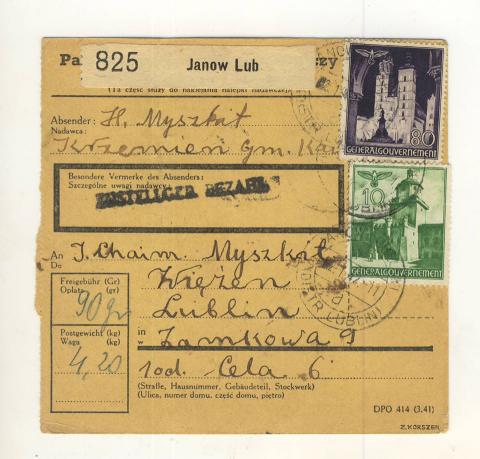 825 Janow Lub
(Ta część służy do naklejania nalepki nadawczej)
Absender: H. Myszkat
Nadawca:
Krzemień gm. Ka
Besondere Vermerke des Absenders:
Szczególne uwagi nadawcy:
80
GENERALGOUVERNEMENT
10
GENERALGOUVERNEMENT
An J. Chaim Myszkat
Do
Freigebühr (Gr)
Opłata (gr)
90 gr
Więzen
Lublin
Postgewicht (kg)
Waga (kg)
4,20
in Zamkowa 9
w
1 od. Cela 6
(Straße, Hausnummer, Gebäudeteil, Stockwerk)
(Ulica, numer domu, część domu, piętro)
DPO 414 (3.41)
Z. KORSZEŃ